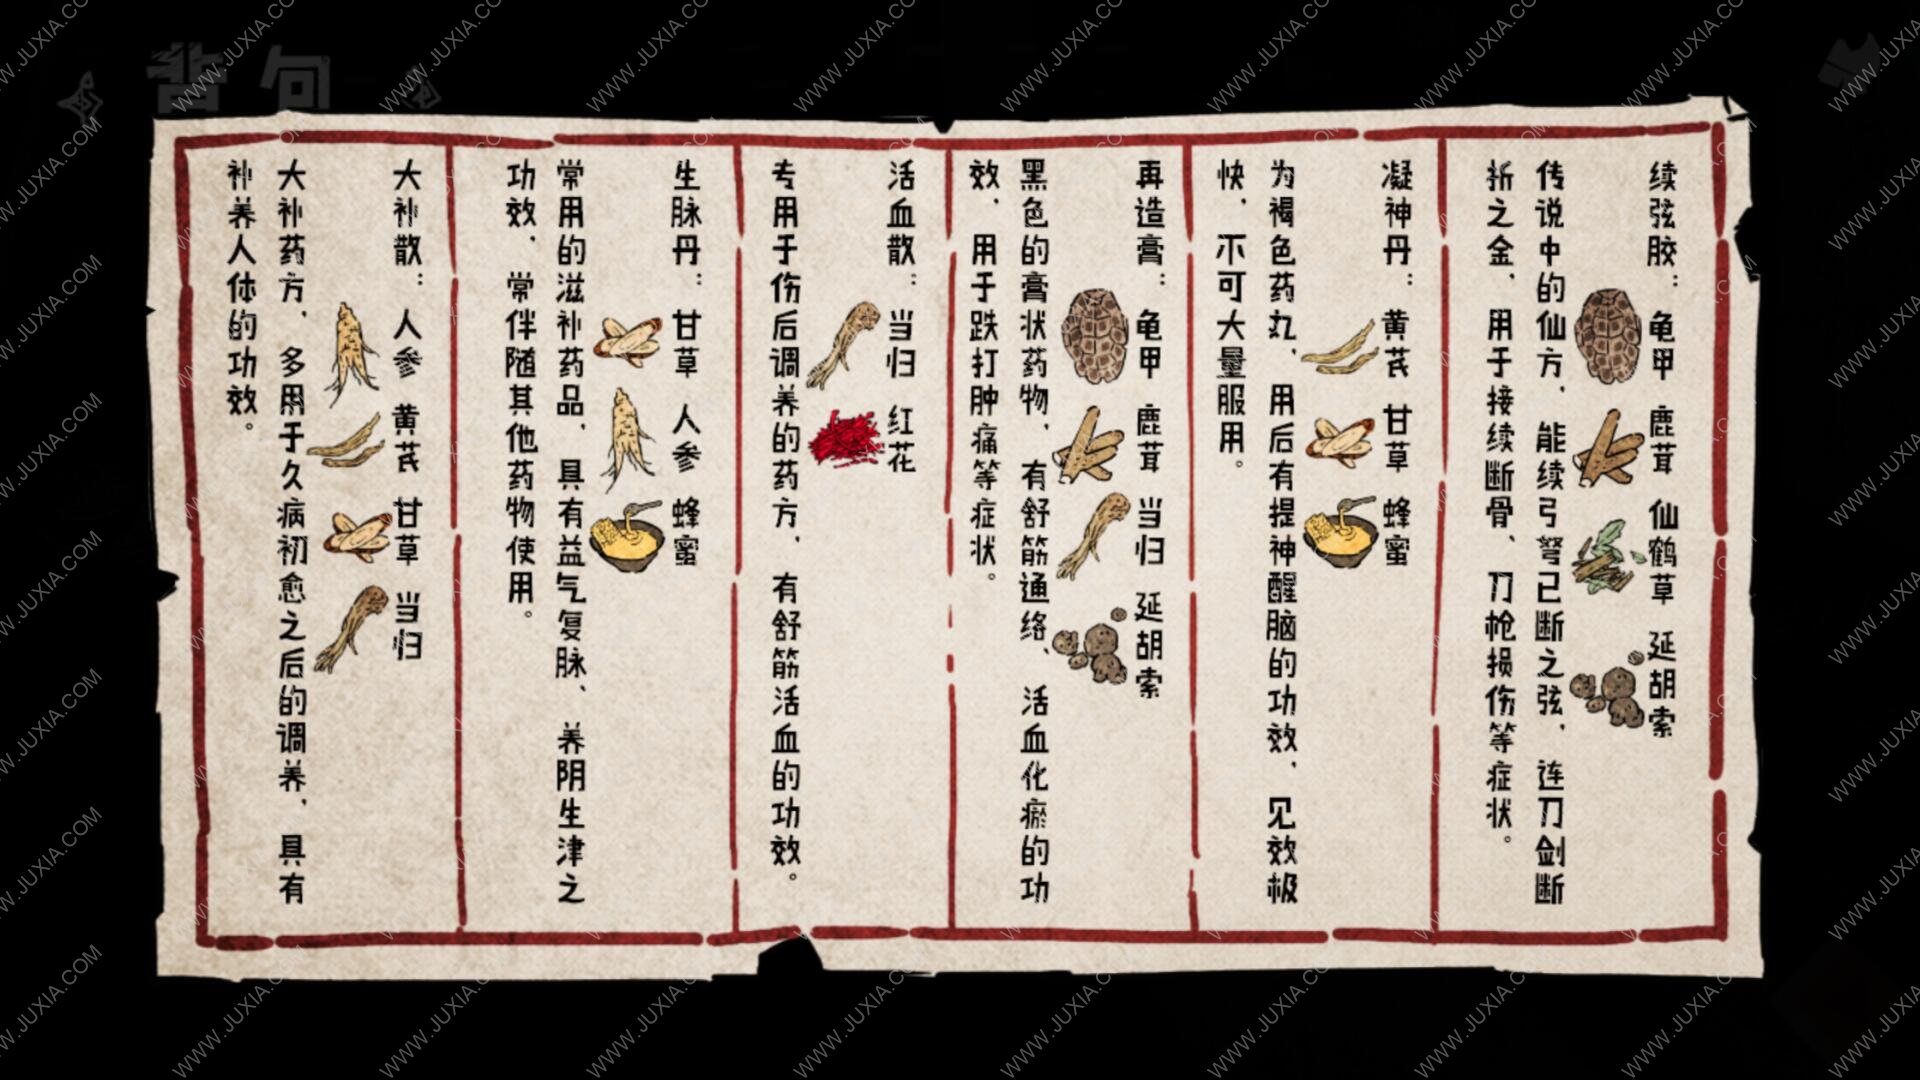 背句
续弦胶：龟甲 鹿茸 仙鹤草 延胡索
传说中的仙方，能续弓弩已断之弦，连刀剑断
折之金，用于接续断骨、刀枪损伤等症状。
凝神丹：黄芪 甘草 蜂蜜
为褐色药丸，用后有提神醒脑的功效，见效极
快，不可大量服用。
再造膏：龟甲 鹿茸 当归 延胡索
黑色的膏状药物，有舒筋通络、活血化瘀的功
效，用于跌打肿痛等症状。
活血散：当归 红花
专用于伤后调养的药方，有舒筋活血的功效。
生脉丹：甘草 人参 蜂蜜
常用的滋补药品，具有益气复脉、养阴生津之
功效，常伴随其他药物使用。
大补散：人参 黄芪 甘草 当归
大补药方，多用于久病初愈之后的调养，具有
补养人体的功效。
WWW.JUXIA.COM